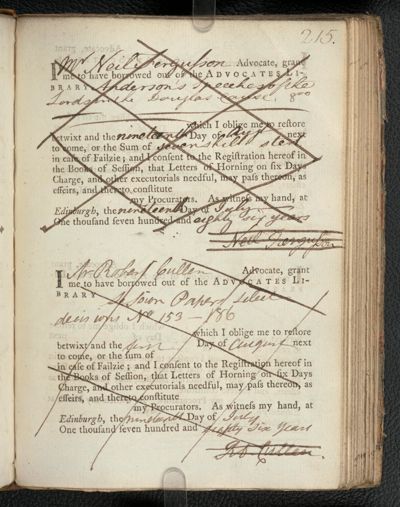 215.
I Mr Neil Fergusson Advocate, grant
me to have borrowed out of the ADVOCATES LI-
BRARY Anderson's Speeches of the
Lords in the Douglas Cause. 8vo
which I oblige me to restore
betwixt and the nineteenth Day of next
to come, or the Sum of seven shill ster
in case of Failzie; and I consent to the Registration hereof in
the Books of Session, that Letters of Horning on six Days
Charge, and other executorials needful, may pass thereon, as
effeirs, and thereto constitute
my Procurators. As witness my hand, at
Edinburgh, the nineteenth Day of July
One thousand seven hundred and eighty six years
Neil Fergusson
I Mr Robert Cullen Advocate, grant
me to have borrowed out of the ADVOCATES LI-
BRARY Session Papers Select
decisions No 153 — 186
which I oblige me to restore
betwixt and the Day of August next
to come, or the sum of
in case of Failzie; and I consent to the Registration hereof in
the Books of Session, that Letters of Horning on six Days
Charge, and other executorials needful, may pass thereon, as
effeirs, and thereto constitute
my Procurators. As witness my hand, at
Edinburgh, the nineteenth Day of July
One thousand seven hundred and eighty six years
Ro. Cullen.